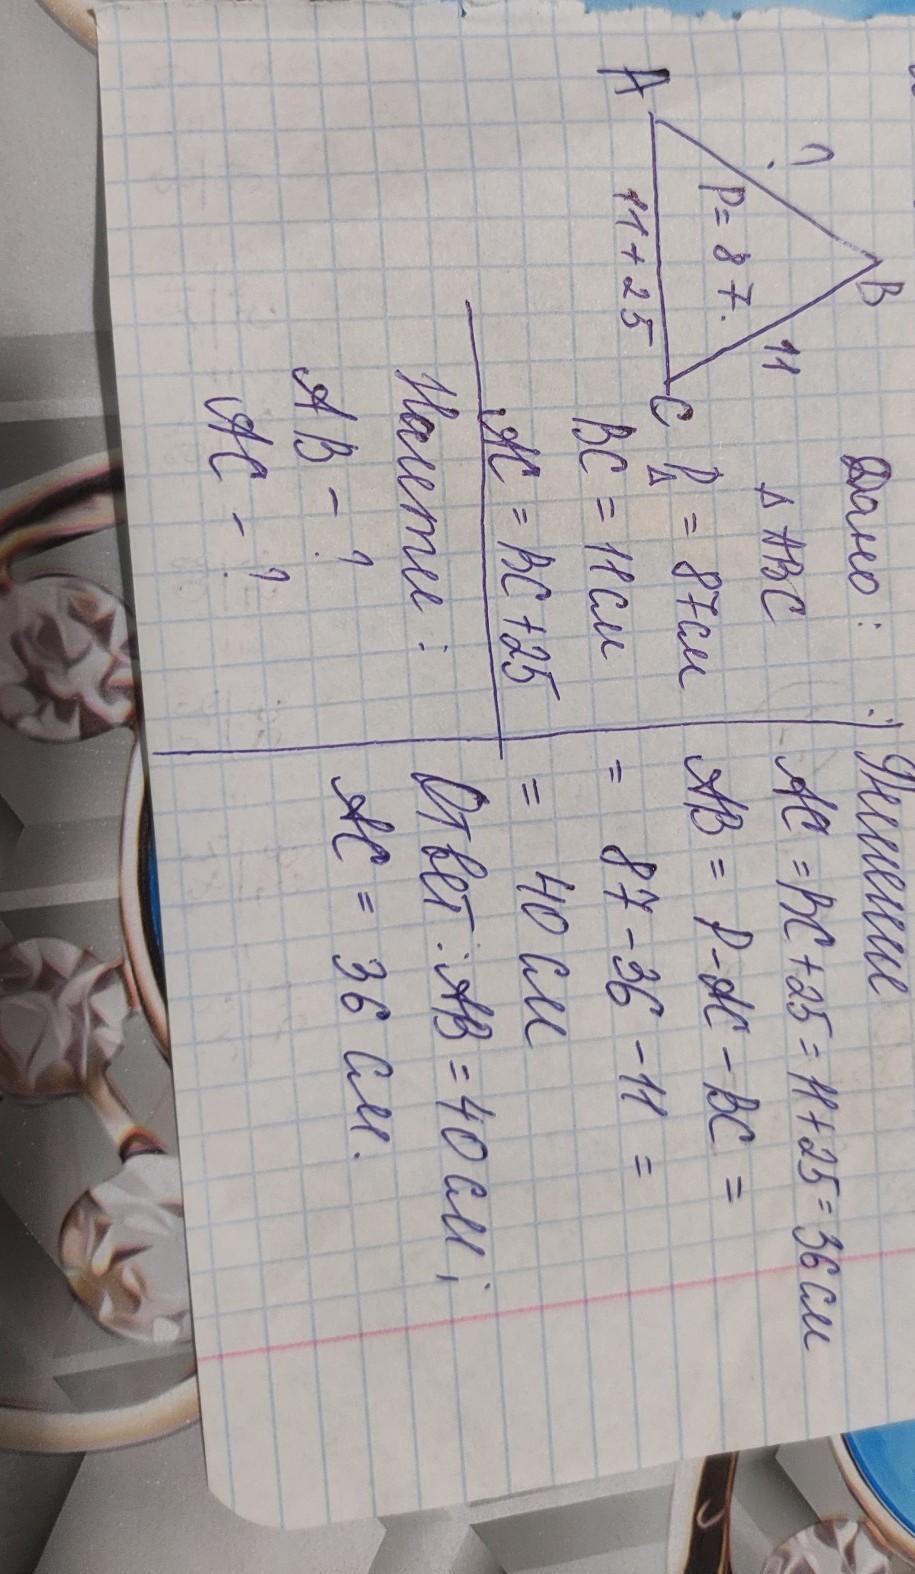 A
?
B
11
P = 87.
11 + 25
C
Дано:
Δ ABC
PΔ = 87см
BC = 11см
AC = BC + 25
Найти:
AB - ?
AC - ?
Решение
AC = BC + 25 = 11 + 25 = 36 см
AB = P - AC - BC =
= 87 - 36 - 11 =
= 40 см
Ответ: AB = 40 см;
AC = 36 см.